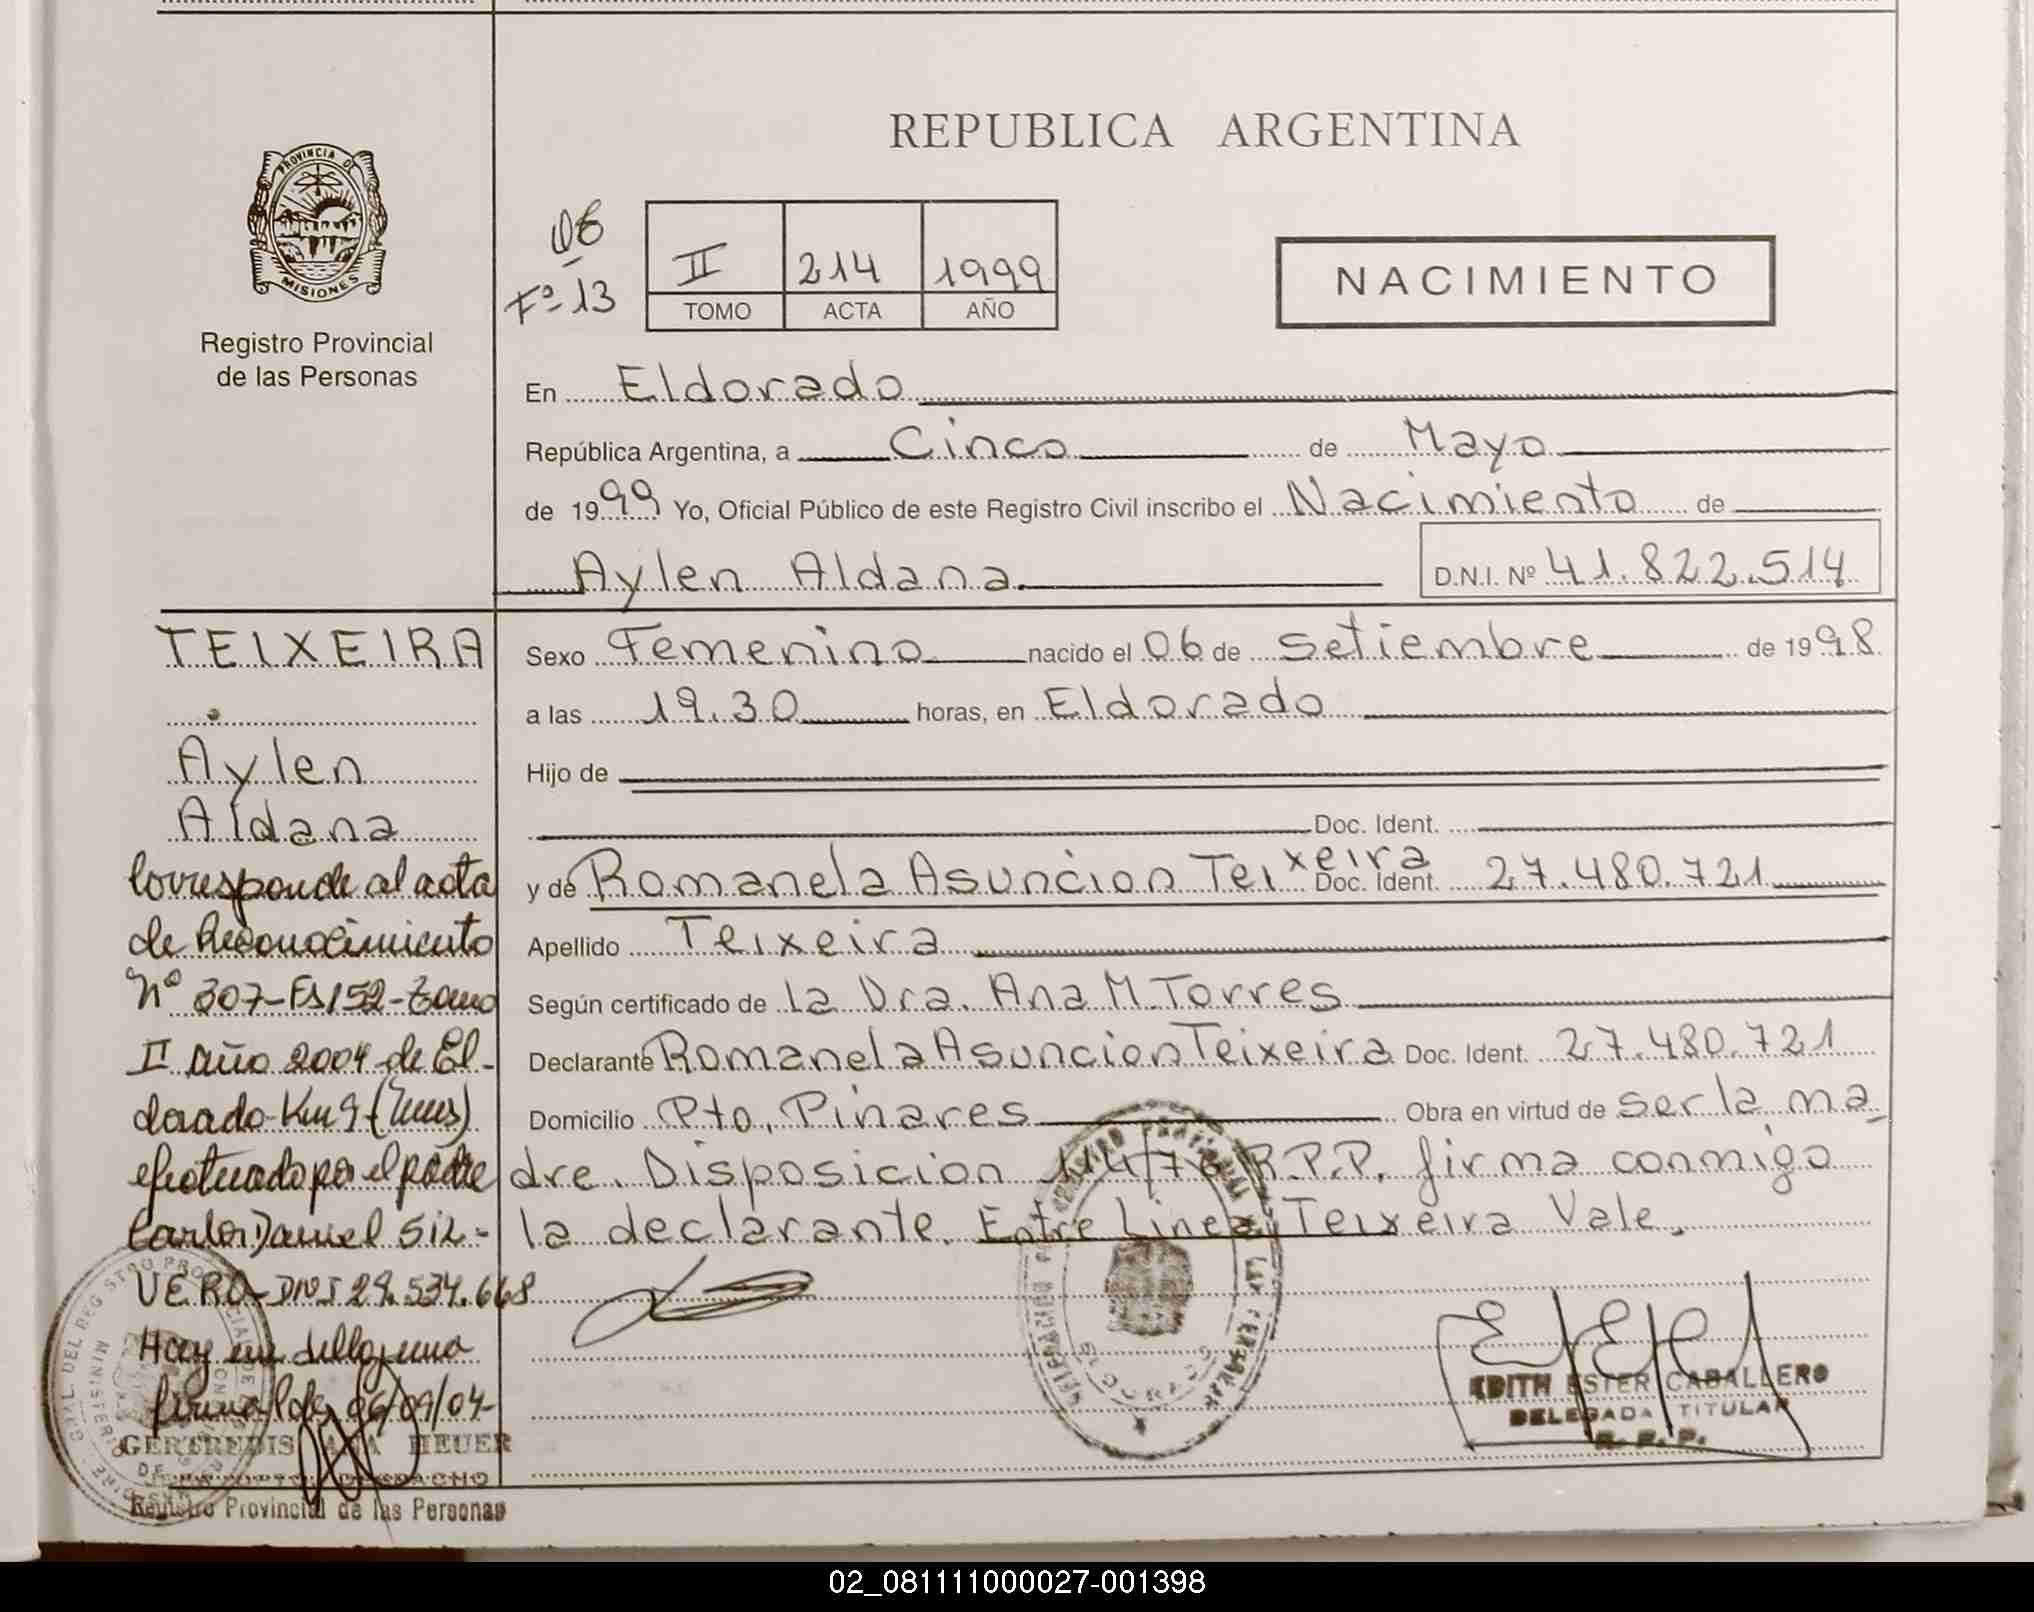 REPUBLICA ARGENTINA
PROVINCIA DE
MISIONES
Registro Provincial
de las Personas
Fº 13
II 214 1999
TOMO ACTA AÑO
NACIMIENTO
En Eldorado
República Argentina, a Cinco de Mayo
de 1999 Yo, Oficial Público de este Registro Civil inscribo el Nacimiento de
Aylen Aldana D.N.I. Nº 41.822.514
TEIXEIRA
Aylen
Aldana
Corresponde al acta
de Reconocimiento
Nº 307-Fs152-Tomo
II año 2004 de El-
dorado-Km9-
efectuado por el padre
Carlos Daniel SIL-
VERO-DNI 29.534.668
Hay un sello y una
firma Pdas 06/09/04-
GERTREDIS ANA HEUER
DESPACHO
Registro Provincial de las Personas
Sexo Femenino nacido el 06 de Setiembre de 1998
a las 19.30 horas, en Eldorado
Hijo de
Doc. Ident.
y de Romanela Asuncion Teixeira Doc. Ident. 27.480.721
Apellido Teixeira
Según certificado de la Dra. Ana M. Torres
Declarante Romanela Asuncion Teixeira Doc. Ident. 27.480.721
Domicilio Pto. Pinares Obra en virtud de ser la ma
dre. Disposicion 114/76 R.P.P. firma conmigo
la declarante. Entre Linea, Teixeira Vale.
EDITH ESTER CABALLERO
DELEGADA TITULAR
R. P. P.
02_081111000027-001398